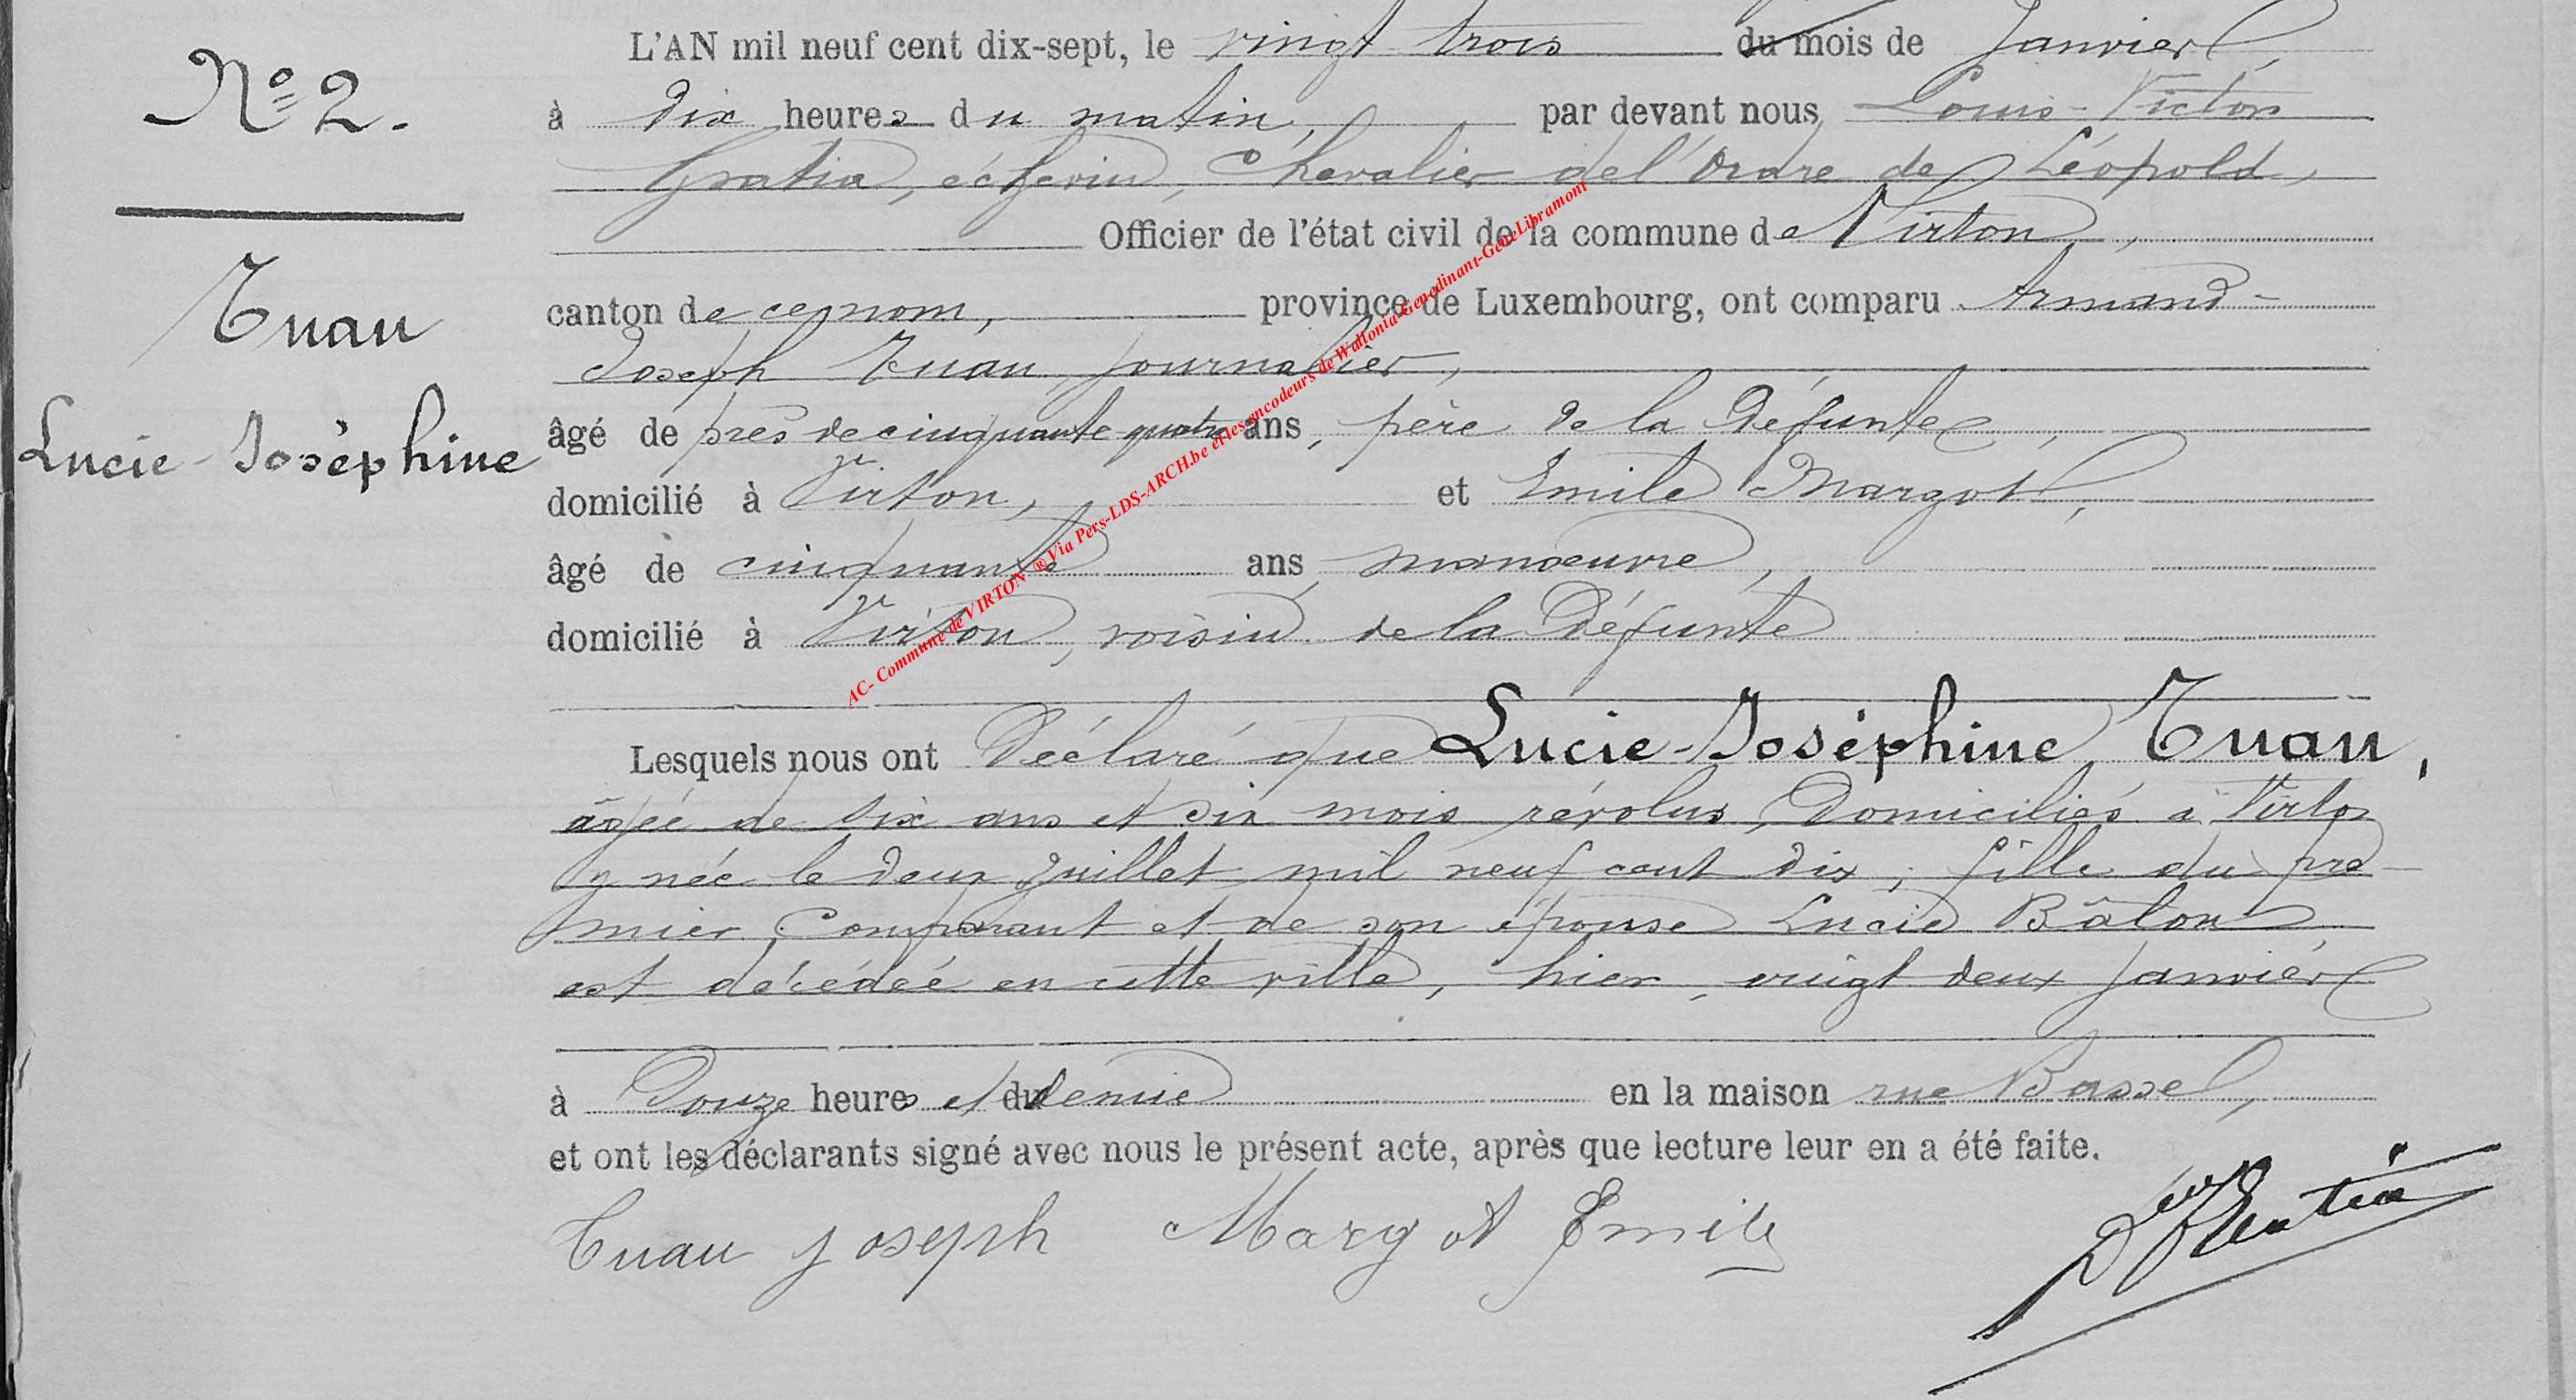 Nº 2.
Tuau
Lucie-Joséphine
L'AN mil neuf cent dix-sept, le vingt trois du mois de Janvier,
à dix heures du matin, par devant nous Louis-Victor
Gratia, échevin, Chevalier de l'Ordre de Léopold,
Officier de l'état civil de la commune de Virton,
canton de ce nom, province de Luxembourg, ont comparu Armand-
Joseph Tuau, journalier,
âgé de près de cinquante quatre ans, père de la défunte,
domicilié à Virton, et Emile Margot,
âgé de cinquante ans, manœuvre,
domicilié à Virton, voisin de la défunte
Lesquels nous ont déclaré que Lucie-Joséphine Tuau,
âgée de six ans et six mois révolus, domiciliée à Virton
y née le deux Juillet mil neuf cent dix, fille du pre-
mier Comparant et de son épouse Lucie Bâlon
est décédée en cette ville, hier, vingt deux Janvier
à Douze heures et du demie en la maison rue Basse,
et ont les déclarants signé avec nous le présent acte, après que lecture leur en a été faite.
Tuau Joseph Margot Emile
AC- Commune de VIRTON ® Via Pers-LDS-ARCH.be et les encodeurs de Wallonia-Genedinant-GeneLibramont